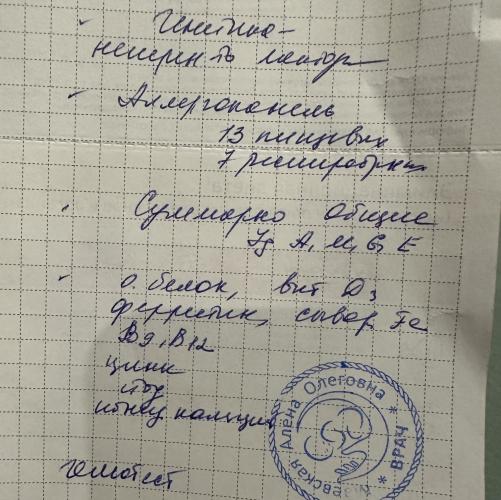 Генетика -
неперен-ть лактоз
Аллергопанель
13 пищевых
7 респираторных
Суммарно общие
Ig A, M, G, E
о. белок, вит D3
ферритин, сывор. Fe
B9, B12
цинк
йод
кальций
гемотест
Алёна Олеговна * ВРАЧ *